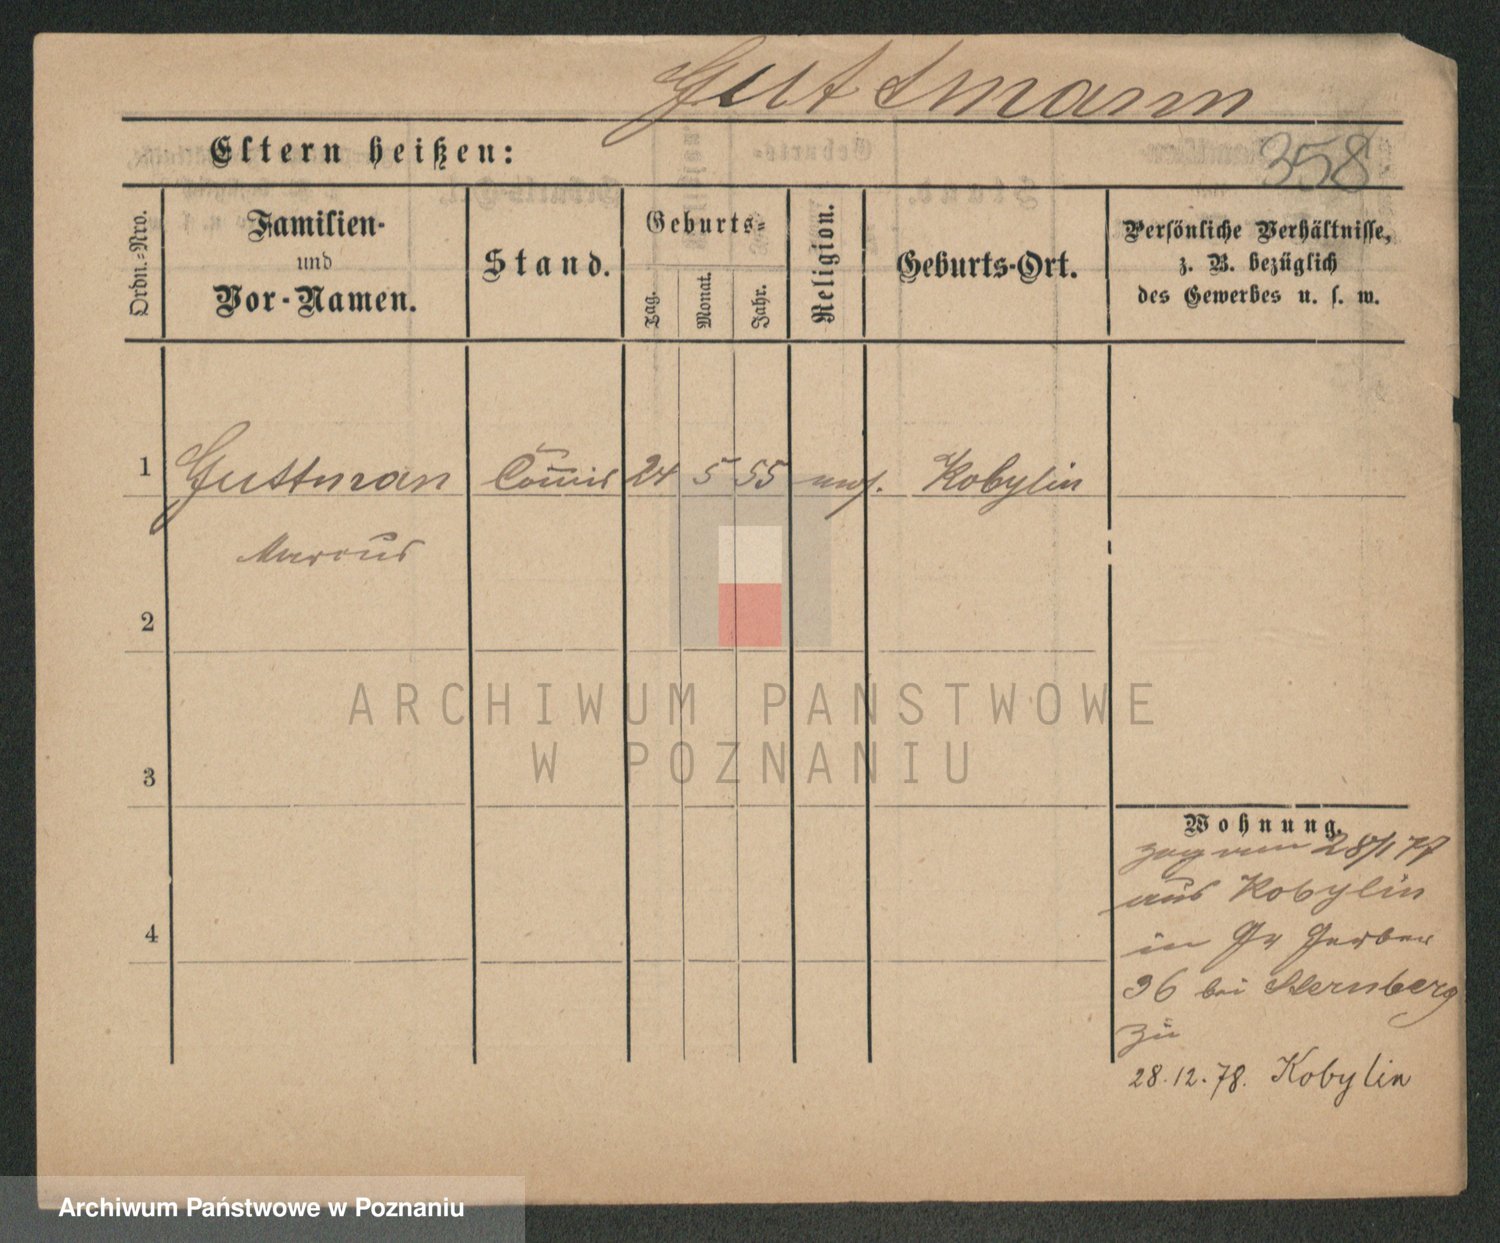 Guttmann
358
Eltern heißen:
Ordn.-Nro.
Familien-
und
Vor-Namen.
Stand.
Geburts-
Tag.
Monat.
Jahr.
Religion.
Geburts-Ort.
Persönliche Verhältnisse,
z. B. bezüglich
des Gewerbes u. s. w.
1 Guttman Commis 24 5 55 mos. Kobylin
Marcus
2
3
4
Wohnung.
zog am 28/1 77
aus Kobylin
in Gr Gerber
36 bei Sternberg
zu
28.12.78. Kobylin
ARCHIWUM PAŃSTWOWE
W POZNANIU
Archiwum Państwowe w Poznaniu